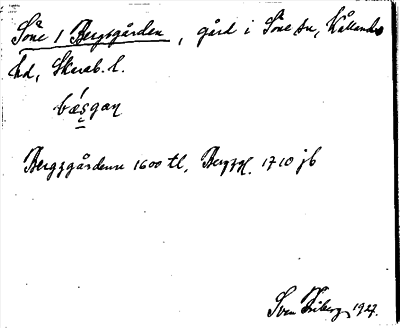 Söne 1 Bergsgården, gård i Söne sn, Kållands
hd, Skarab. l.
bǽsgaṇ
Bergzgårdenn 1600 tl, Bergzg. 1710 jb
Sven Friberg 1927.